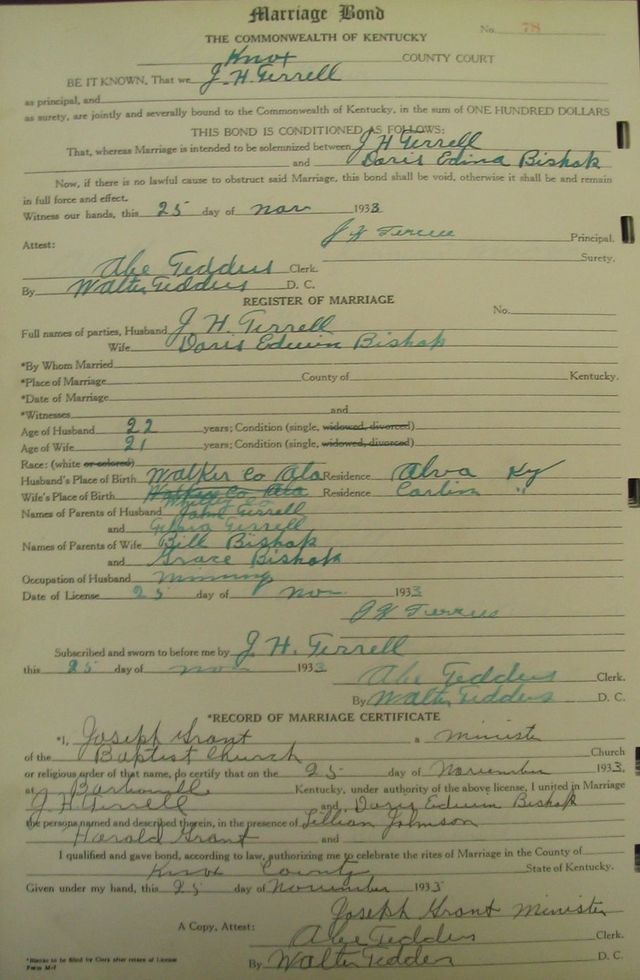 Marriage Bond
No. 78
THE COMMONWEALTH OF KENTUCKY
Knox COUNTY COURT
BE IT KNOWN, That we J. H. Terrell
as principal, and
as surety, are jointly and severally bound to the Commonwealth of Kentucky, in the sum of ONE HUNDRED DOLLARS
THIS BOND IS CONDITIONED AS FOLLOWS:
That, whereas Marriage is intended to be solemnized between J H Terrell
and Doris Edina Bishop
Now, if there is no lawful cause to obstruct said Marriage, this bond shall be void, otherwise it shall be and remain
in full force and effect.
Witness our hands, this 25 day of Nov 1933
J H Principal.
Attest: Surety.
Abe Tedders Clerk.
By Walter Tedders D. C.
REGISTER OF MARRIAGE
No.
Full names of parties, Husband J H Terrell
Wife Doris Edwin Bishop
*By Whom Married
*Place of Marriage County of Kentucky.
*Date of Marriage
*Witnesses and
Age of Husband 22 years; Condition (single, widowed, divorced)
Age of Wife 21 years; Condition (single, widowed, divorced)
Race: (white or colored)
Husband's Place of Birth Walker Co Ala Residence Alva Ky
Wife's Place of Birth Walker Co Ala Residence "
Names of Parents of Husband John Terrell
and Terrell
Names of Parents of Wife Bill Bishop
and Grace Bishop
Occupation of Husband Minning
Date of License 25 day of Nov 1933
J H
Subscribed and sworn to before me by J. H. Terrell
this 25 day of Nov 1933
Abe Tedders Clerk.
By Walter Tedders D. C.
*RECORD OF MARRIAGE CERTIFICATE
*I, Joseph Grant a Minister
of the Baptist Church Church
or religious order of that name, do certify that on the 25 day of November 1933,
at Kentucky, under authority of the above license, I united in Marriage
J. H. Terrell and Doris Edwin Bishop
the persons named and described therein, in the presence of Lillian Johnson
Harold Grant and
I qualified and gave bond, according to law, authorizing me to celebrate the rites of Marriage in the County of
Knox County State of Kentucky.
Given under my hand, this 25 day of November 1933
Joseph Grant Minister
A Copy, Attest: Abe Tedders Clerk.
By Walter Tedders D. C.
*Blanks to be filled by Clerk after return of License